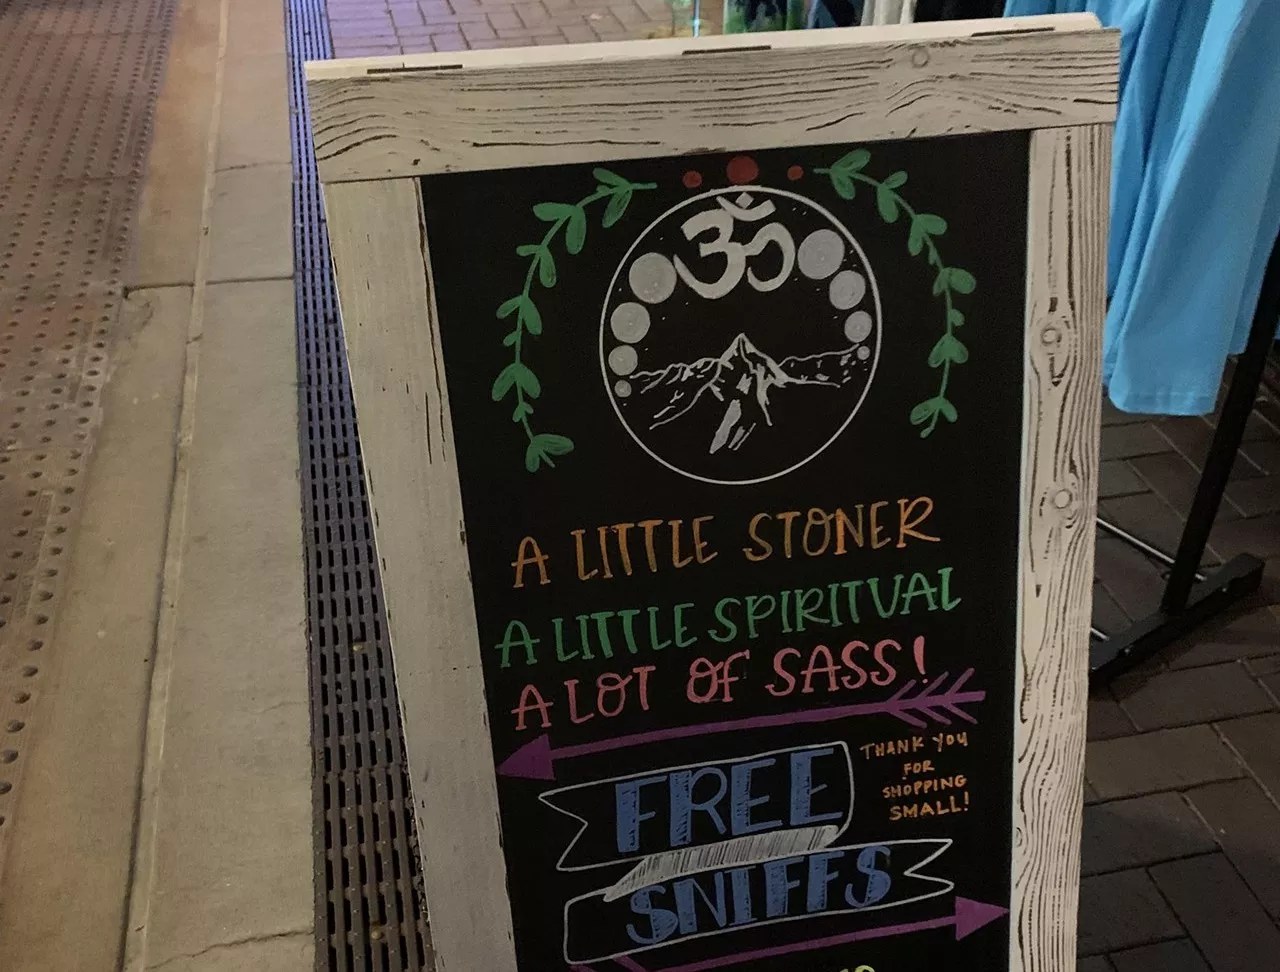 ॐ
A LITTLE STONER
A LITTLE SPIRITUAL
A LOT OF SASS!
THANK YOU
FOR
SHOPPING
SMALL!
FREE
SNIFFS